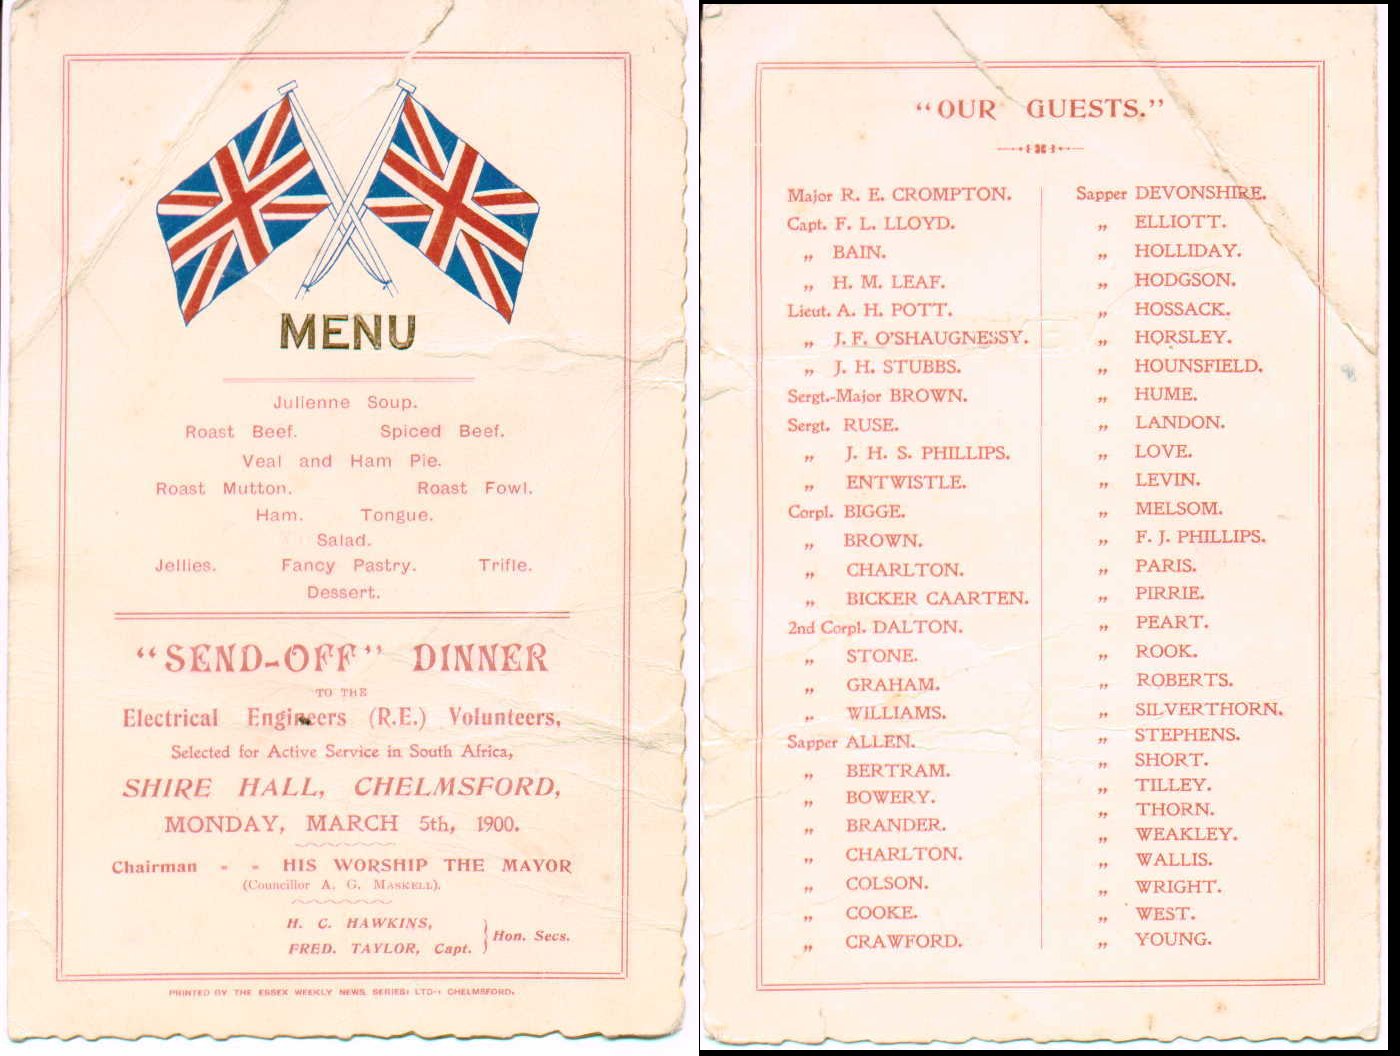 MENU
Julienne Soup.
Roast Beef. Spiced Beef.
Veal and Ham Pie.
Roast Mutton. Roast Fowl.
Ham. Tongue.
Salad.
Jellies. Fancy Pastry. Trifle.
Dessert.
"SEND-OFF" DINNER
TO THE
Electrical Engineers (R.E.) Volunteers,
Selected for Active Service in South Africa,
SHIRE HALL, CHELMSFORD,
MONDAY, MARCH 5th, 1900.
Chairman - - HIS WORSHIP THE MAYOR
(Councillor A. G. MASKELL).
H. C. HAWKINS,
FRED. TAYLOR, Capt. } Hon. Secs.
PRINTED BY THE ESSEX WEEKLY NEWS SERIES, LTD., CHELMSFORD.
"OUR GUESTS."
Major R. E. CROMPTON.
Capt. F. L. LLOYD.
„ BAIN.
„ H. M. LEAF.
Lieut. A. H. POTT.
„ J. F. O'SHAUGNESSY.
„ J. H. STUBBS.
Sergt.-Major BROWN.
Sergt. RUSE.
„ J. H. S. PHILLIPS.
„ ENTWISTLE.
Corpl. BIGGE.
„ BROWN.
„ CHARLTON.
„ BICKER CAARTEN.
2nd Corpl. DALTON.
„ STONE.
„ GRAHAM.
„ WILLIAMS.
Sapper ALLEN.
„ BERTRAM.
„ BOWERY.
„ BRANDER.
„ CHARLTON.
„ COLSON.
„ COOKE.
„ CRAWFORD.
Sapper DEVONSHIRE.
„ ELLIOTT.
„ HOLLIDAY.
„ HODGSON.
„ HOSSACK.
„ HORSLEY.
„ HOUNSFIELD.
„ HUME.
„ LANDON.
„ LOVE.
„ LEVIN.
„ MELSOM.
„ F. J. PHILLIPS.
„ PARIS.
„ PIRRIE.
„ PEART.
„ ROOK.
„ ROBERTS.
„ SILVERTHORN.
„ STEPHENS.
„ SHORT.
„ TILLEY.
„ THORN.
„ WEAKLEY.
„ WALLIS.
„ WRIGHT.
„ WEST.
„ YOUNG.